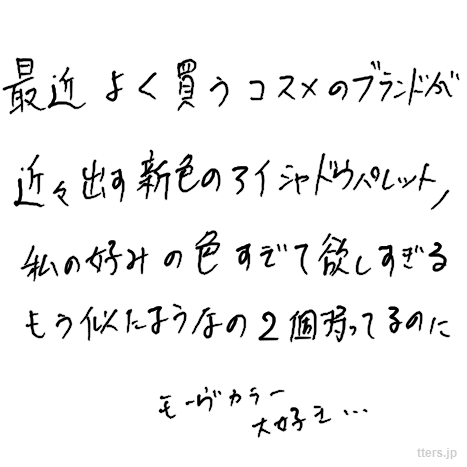 最近よく買うコスメのブランドが
近々出す新色のアイシャドウパレット,
私の好みの色すぎて欲しすぎる
もう似たようなの2個持ってるのに
モーヴカラー
大好き…
tters.jp